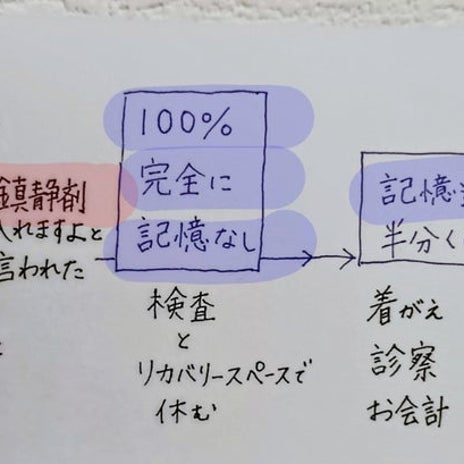 鎮静剤
入れますよと
言われた
と
100%
完全に
記憶なし
検査
と
リカバリースペースで
休む
記憶
半分く
着がえ
診察
お会計